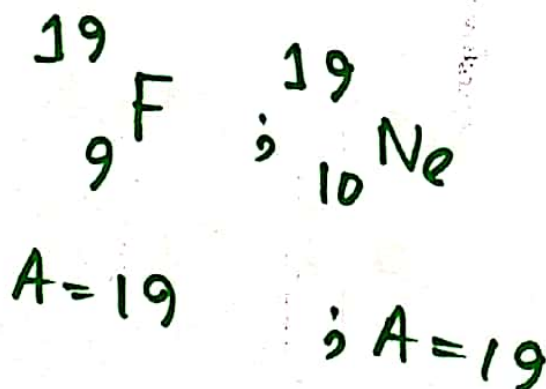 ¹⁹₉F ; ¹⁹₁₀Ne
A = 19 ; A = 19